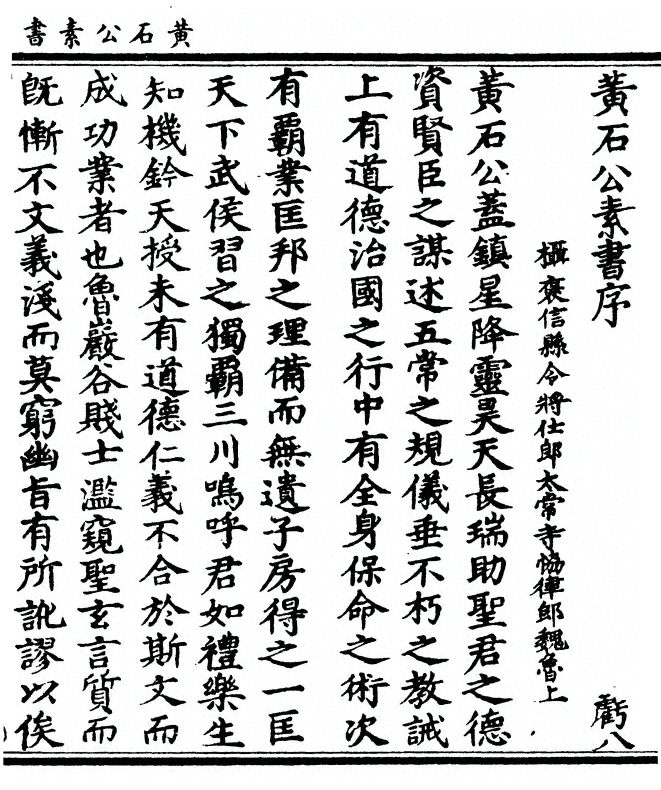 黃石公素書
黃石公素書序
虧八
攝褒信縣令將仕郎太常寺恊律郎魏魯上
黃石公蓋鎮星降靈昊天長瑞助聖君之德
資賢臣之謀述五常之規儀垂不朽之教誡
上有道德治國之行中有全身保命之術次
有霸業匡邦之理備而無遺子房得之一匡
天下武侯習之獨霸三川嗚呼君如禮樂生
知機鈐天授未有道德仁義不合於斯文而
成功業者也魯巖谷賤士濫窺聖玄言質而
旣慚不文義淺而莫窮幽旨有所訛謬以俟